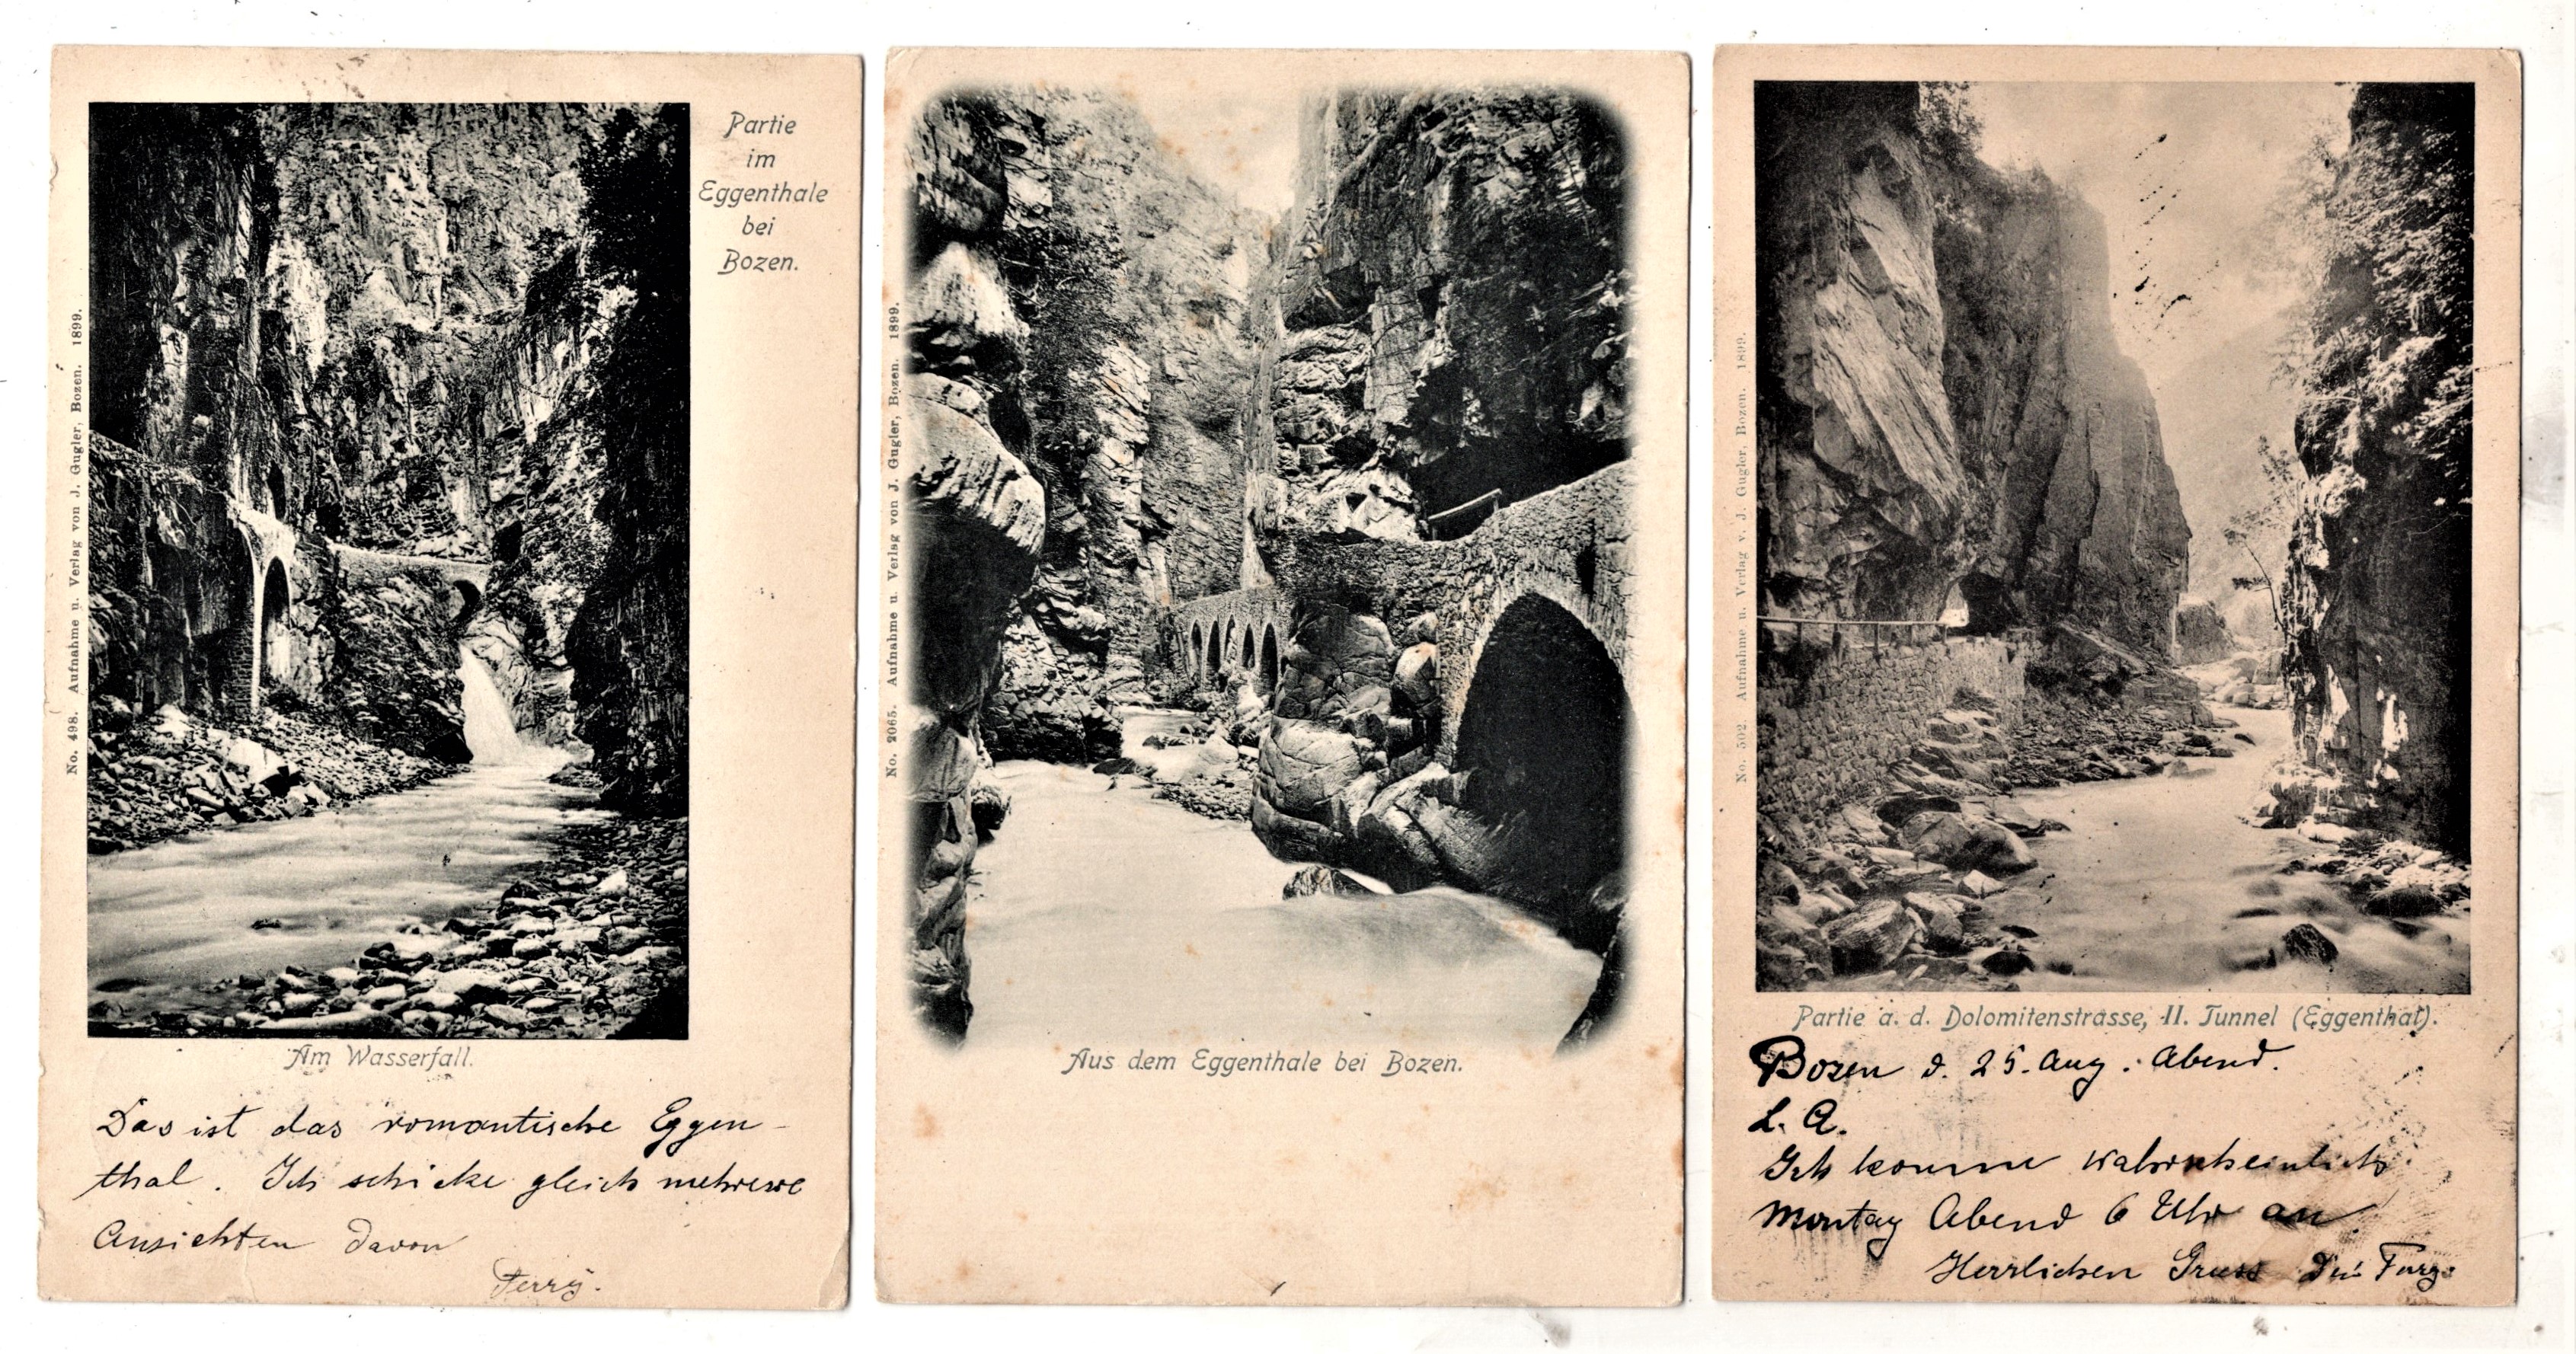 Partie
im
Eggenthale
bei
Bozen.
No. 498. Aufnahme u. Verlag von J. Gugler, Bozen. 1899.
Am Wasserfall.
Das ist das romantische Eggen-
thal. Ich schicke gleich mehrere
Ansichten davon
Ferry.
No. 2065. Aufnahme u. Verlag von J. Gugler, Bozen. 1899.
Aus dem Eggenthale bei Bozen.
No. 502. Aufnahme u. Verlag v. J. Gugler, Bozen. 1899.
Partie a. d. Dolomitenstrasse, II. Tunnel (Eggenthal).
Bozen d. 25. Aug. Abend.
L. A.
Ich komme wahrscheinlich
Montag Abend 6 Uhr an
Herrlichen Gruss Dein